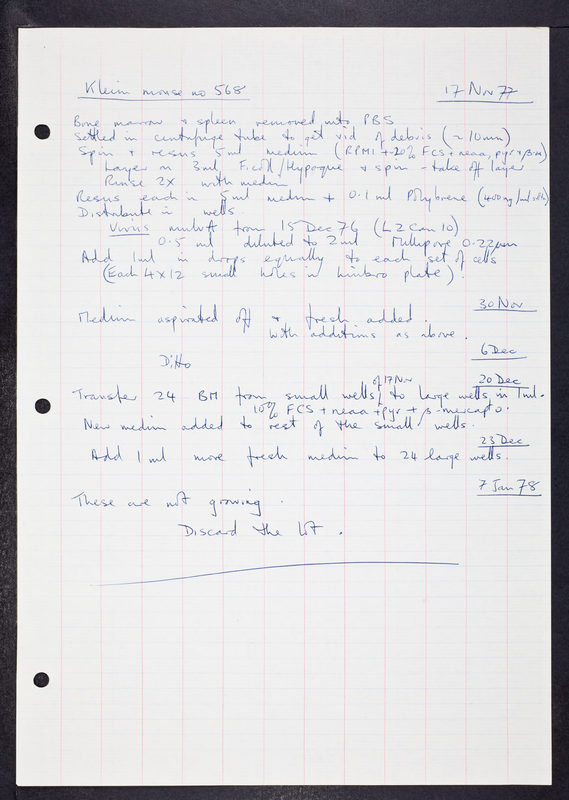 Klein mouse no 568 17 Nov 77
Bone marrow + spleen removed into PBS
Settled in centrifuge tube to get rid of debris (~10min)
Spin + resus 5ml medium (RPMI + 20% FCS + neaa, pyr + βM)
Layer on 3ml Ficoll/Hypaque + spin - take off layer
Rinse 2X with medium
Resus each in 5ml medium + 0.1ml Polybrene (400ng/ml)
Distribute in wells.
Virus from 15 Dec 76 (L2 Can 10)
0.5 ml diluted to 2ml Millipore 0.22μm
Add 1ml in drops equally to each set of cells
(Each 4X12 small holes in Linbro plate).
30 Nov
Medium aspirated off + fresh added.
with additions as above.
6 Dec
Ditto
20 Dec
of 17 Nov
Transfer 24 BM from small wells to large wells in 1ml.
10% FCS + neaa + pyr + β-mercapto.
New medium added to rest of the small wells.
23 Dec
Add 1ml more fresh medium to 24 large wells.
7 Jan 78
These are not growing.
Discard the lot.